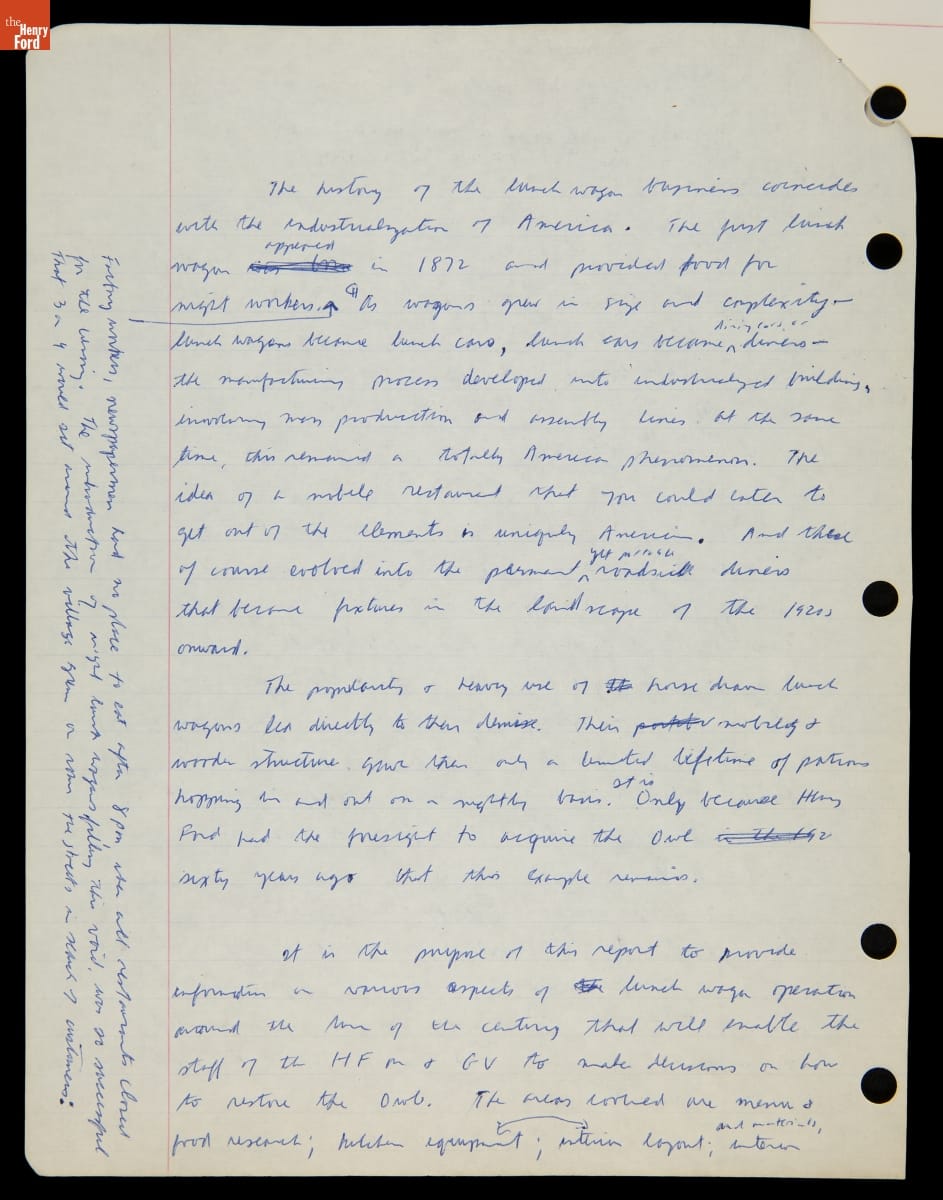 the
Henry
Ford
The history of the lunch wagon business coincides
with the industrialization of America. The first lunch
appeared
wagon in 1872 and provided food for
night workers. ¶ As wagons grew in size and complexity –
dining cars, or
lunch wagons became lunch cars, lunch cars became diners –
the manufacturing process developed into industrialized building,
involving mass production and assembly lines. At the same
time, this remained a totally American phenomenon. The
idea of a mobile restaurant that you could enter to
get out of the elements is uniquely American. And these
yet
of course evolved into the permanent roadside diners
that became fixtures in the landscape of the 1920s
onward.
The popularity & heavy use of horse drawn lunch
wagons led directly to their demise. Their mobility &
wooden structure gave them only a limited lifetime of patrons
It is
hopping in and out on a nightly basis. Only because Henry
Ford had the foresight to acquire the Owl
sixty years ago that this example remains.
It is the purpose of this report to provide
information on various aspects of lunch wagon operation
around the turn of the century that will enable the
staff of the HFM & GV to make decisions on how
to restore the Owl. The areas covered are menu &
and materials,
food research; kitchen equipment; interior layout; interior
Factory workers, newspapermen had no place to eat after 8 pm when all restaurants closed
for the evening. The introduction of night lunch wagons filling this void, was so successful
that 3 or 4 would set around the village green or roam the streets in search of customers.